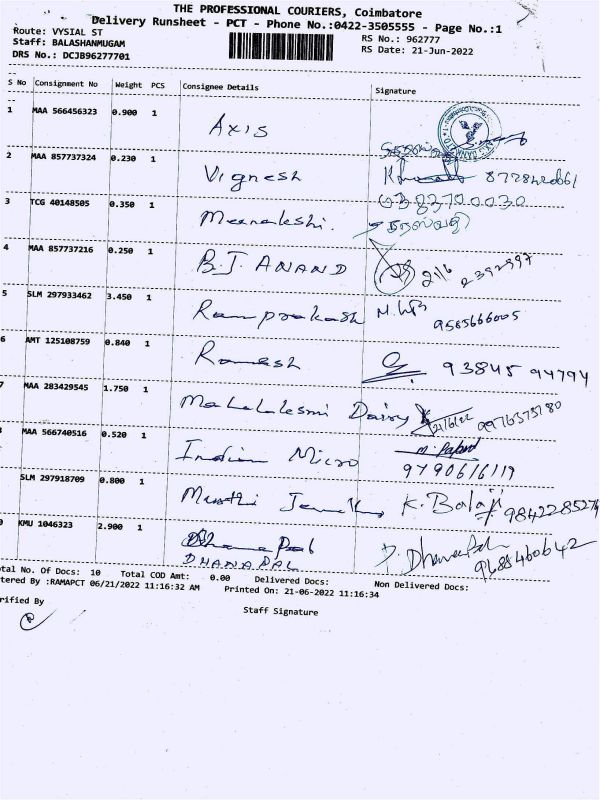 THE PROFESSIONAL COURIERS, Coimbatore
Delivery Runsheet - PCT - Phone No.:0422-3505555 - Page No.:1
Route: VYSIAL ST
Staff: BALASHANMUGAM
DRS No.: DCJB96277701
RS No.: 962777
RS Date: 21-Jun-2022
S No Consignment No Weight PCS Consignee Details Signature
1 MAA 566456323 0.900 1 Axis
2 MAA 857737324 0.230 1 Vignesh
3 TCG 40148505 0.350 1 Meenakshi.
4 MAA 857737216 0.250 1 B.J. ANAND 21/6
5 SLM 297933462 3.450 1 Ramprakash 9585666005
6 AMT 125108759 0.840 1 Ramesh 93845 94794
7 MAA 283429545 1.750 1 Mahalakshmi Dairy 21/6/22
MAA 566740516 0.520 1 Indian Micro 9790616119
SLM 297918709 0.800 1 K. Balaji
KMU 1046323 2.900 1 Dhanapal D. Dhanapal
DHANAPAL 9688460642
otal No. Of Docs: 10 Total COD Amt: 0.00 Delivered Docs: Non Delivered Docs:
tered By :RAMAPCT 06/21/2022 11:16:32 AM Printed On: 21-06-2022 11:16:34
rified By
Staff Signature